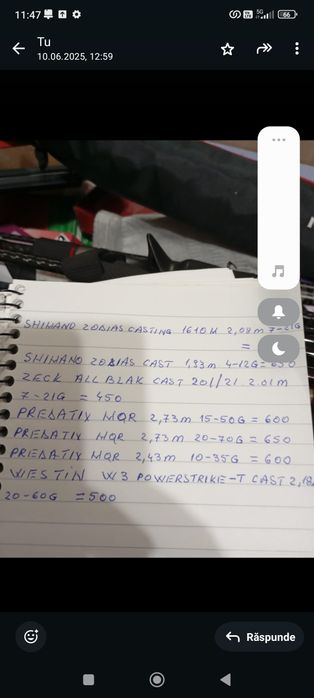 11:47
5G
66
Tu
10.06.2025, 12:59
SHIMANO ZODIAS CASTING 1610M 2,08m 7-21G
=
SHIMANO ZODIAS CAST 1,93m 4-12G= 650
ZECK ALL BLAK CAST 201//21 2.01m
7-21G = 450
PREDATIX MQR 2,73m 15-50G = 600
PREDATIX MQR 2,73m 20-70G = 650
PREDATIX MQR 2,43m 10-35G = 600
WESTIN W3 POWERSTRIKE-T CAST 2,18
20-60G =500
Răspunde